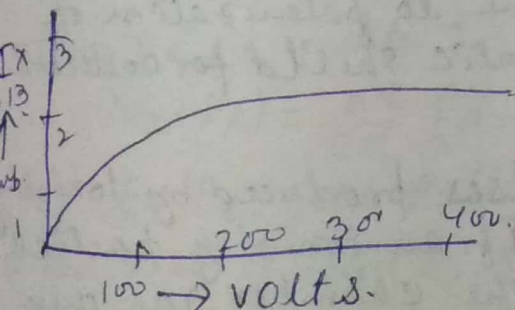 3
Ix
13
2
1
100 → volts.
200
300
400.